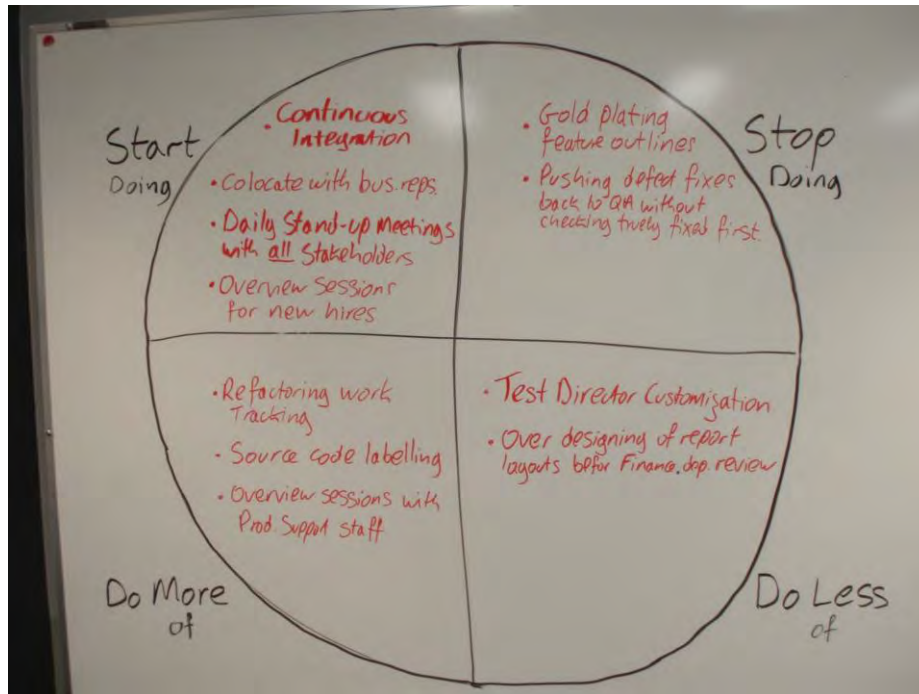 Start
Doing
• Continuous
Integration
• Colocate with bus. reps.
• Daily Stand-up Meetings
with all Stakeholders
• Overview Sessions
for new hires
Stop
Doing
• Gold plating
feature outlines
• Pushing defect fixes
back to QA without
checking truely fixed first.
Do More
of
• Refactoring work
Tracking
• Source code labelling
• Overview sessions with
Prod. Support staff
Do Less
of
• Test Director Customization
• Over designing of report
layouts befor Finance. dep. review